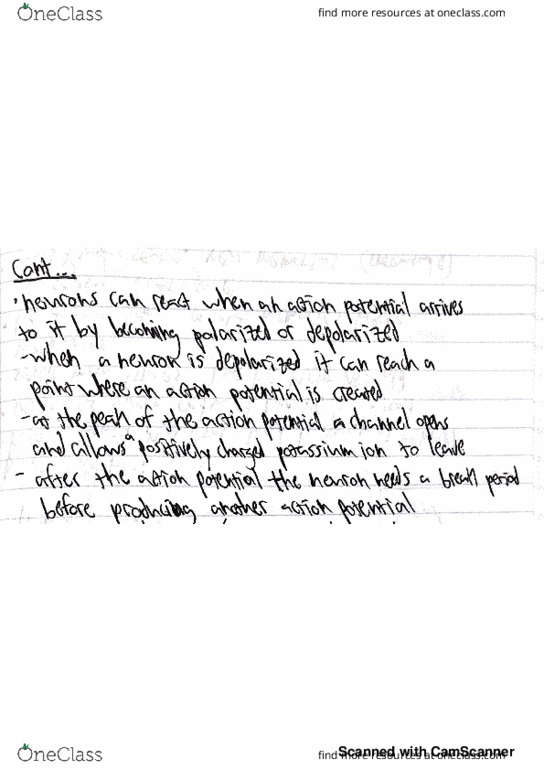 OneClass
find more resources at oneclass.com
Cont...
• neurons can react when an action potential arrives
to it by becoming polarized or depolarized
- when a neuron is depolarized it can reach a
point where an action potential is created
- at the peak of the action potential a channel opens
and allows a positively charged potassium ion to leave
- after the action potential the neuron needs a break period
before producing another action potential
OneClass
find more resources at oneclass.com
Scanned with CamScanner